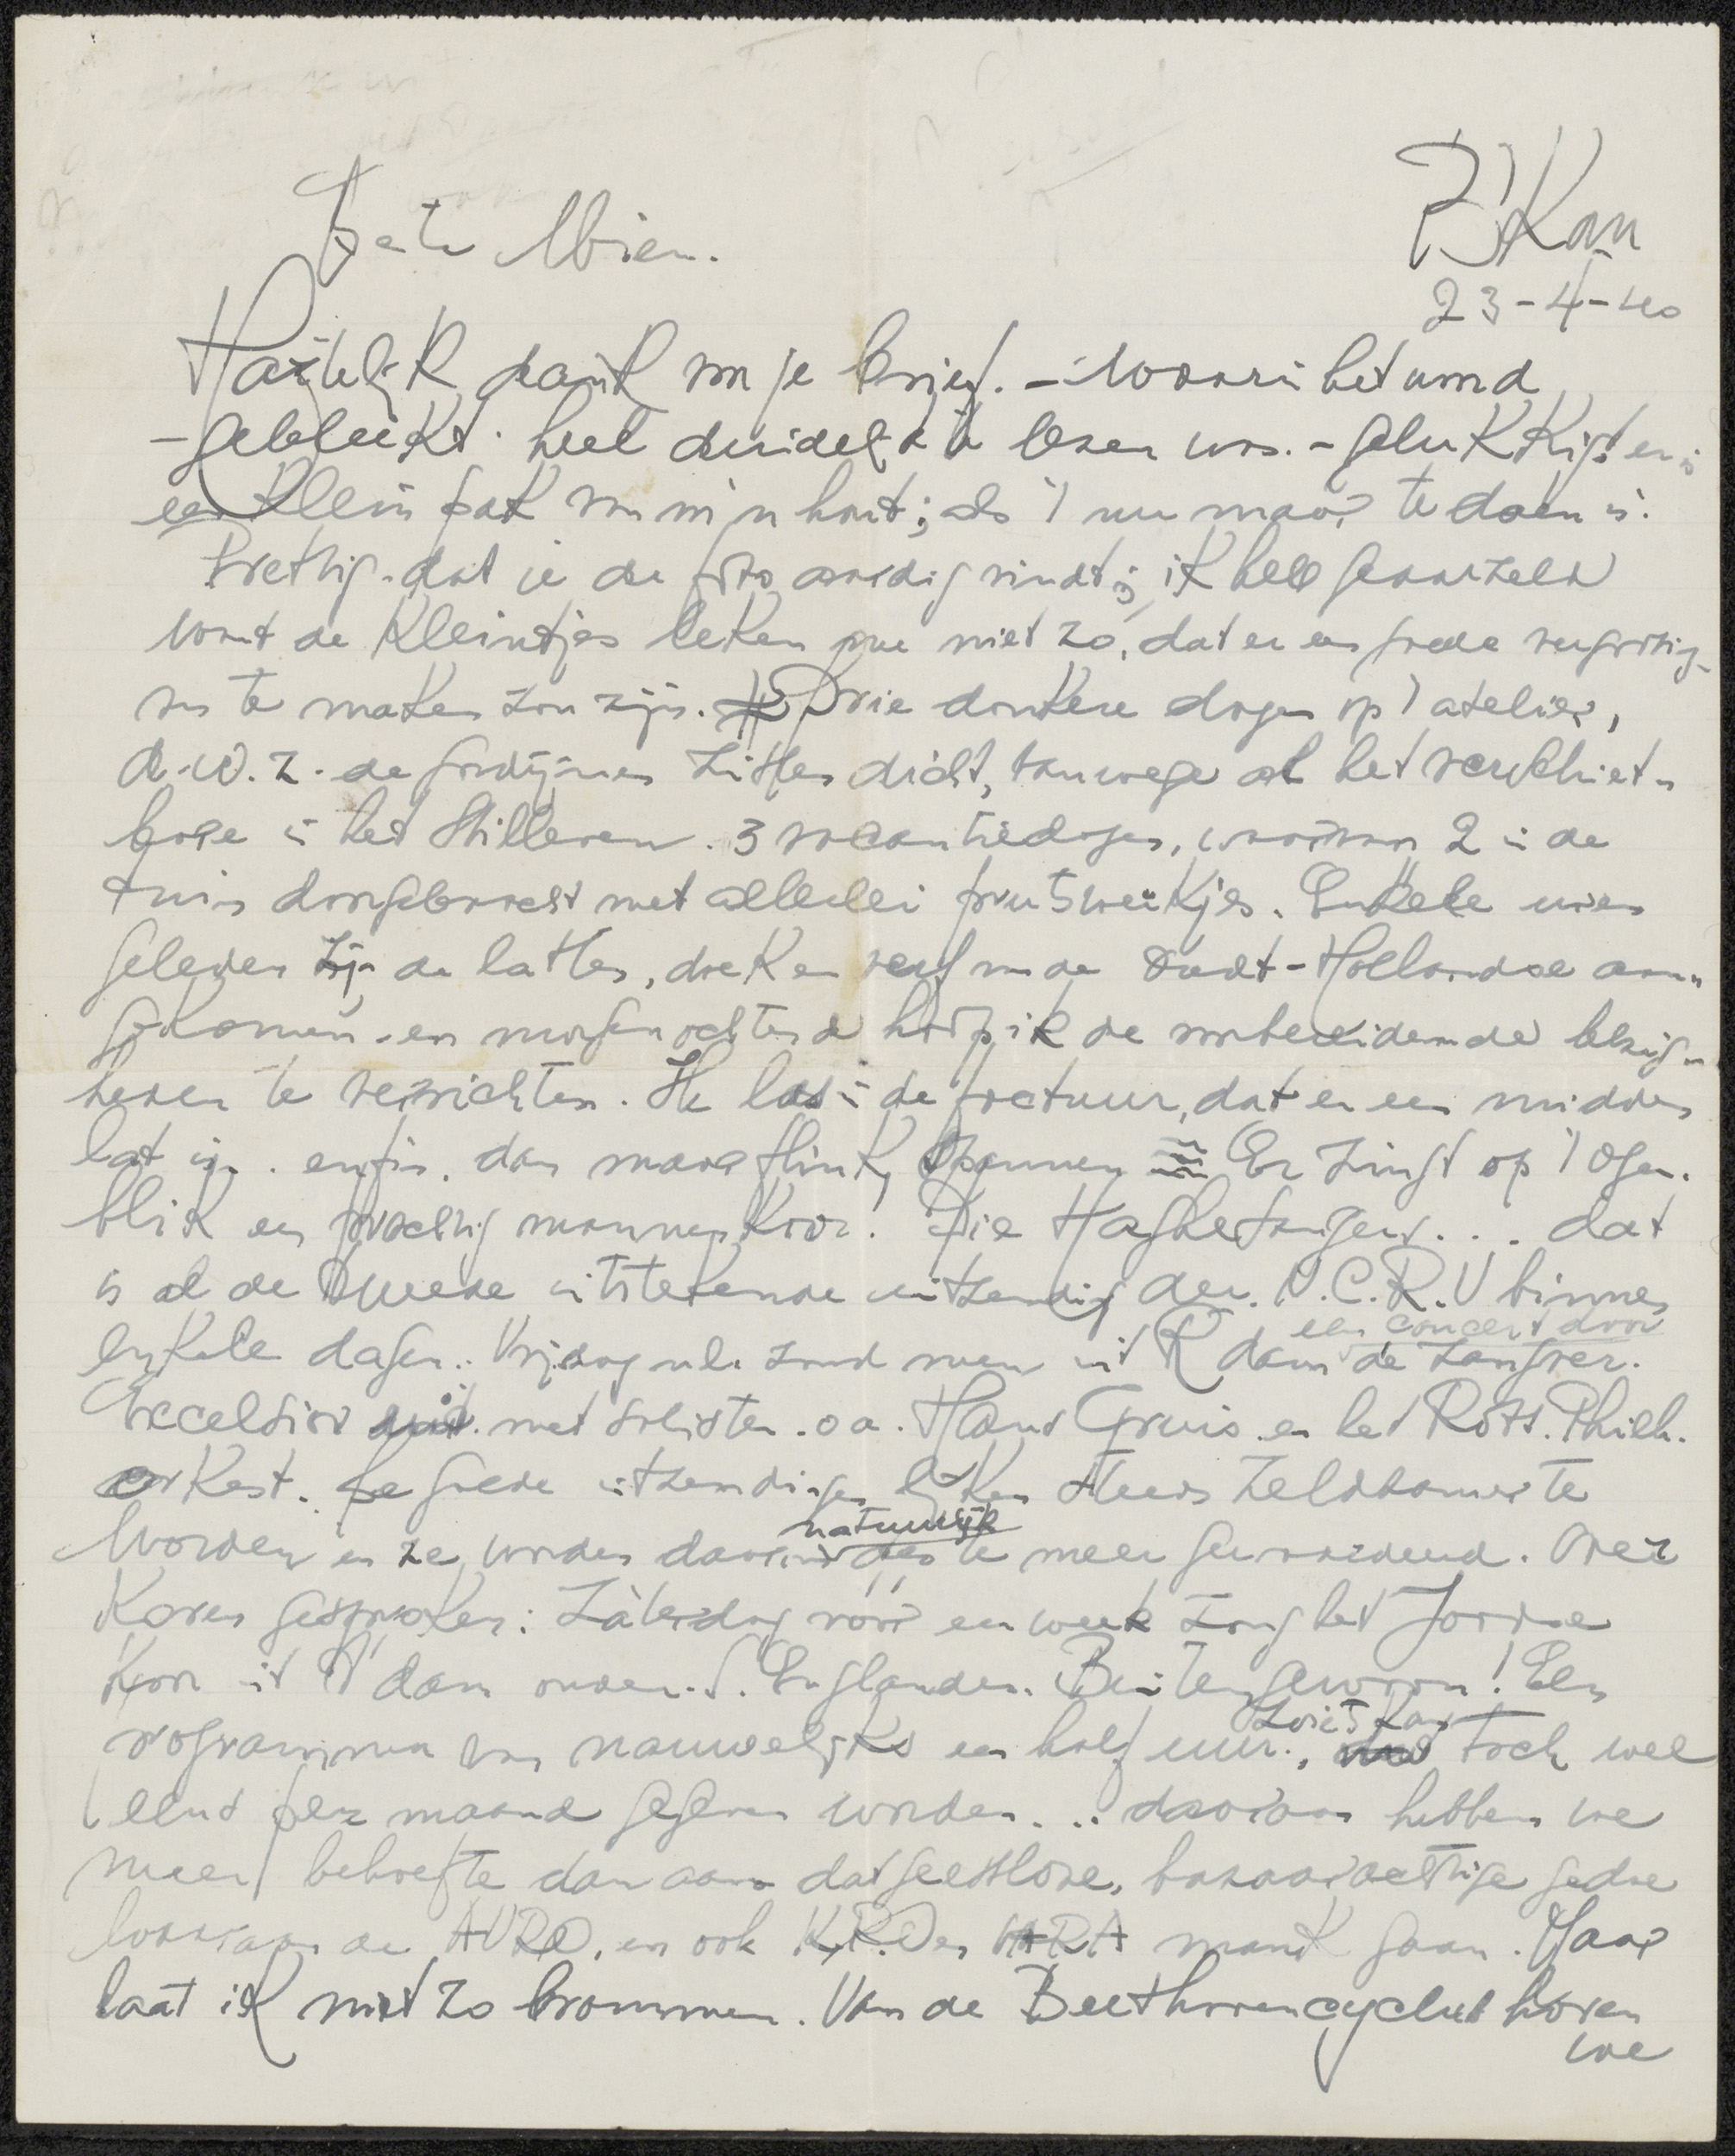 Beste Mien.
B'Kan
23-4-40
Hartelijk dank van je brief. – Waarin het woord
– gebleekt. heel duidelijk te lezen was. – Gelukkig! er is
een klein pak van m'n hart; als 't nu maar te doen is.
Prettig. dat je de foto aardig vindt; ik heb geaarzeld
want de kleintjes leken me niet zo, dat er een goede vergroting
van te maken zou zijn. Drie donkere dagen op 't atelier,
d.w.z. de gordijnen zitten dicht, vanwege al het verschiet-
bare in het stilleven. 3 vacantiedagen, waarvan 2 in de
tuin doorgebracht met allerlei prutswerkjes. Enkele uren
geleden zijn de latten, doek en verf van de Oudt-Hollandse aan-
gekomen. en morgenochtend hoop ik de voorbereidende bezig-
heden te verrichten. Ik las in de factuur, dat er een midden
lat in. enfin. dan maar flink spannen Er zingt op 't ogen-
blik een prachtig mannenkoor. Die Haghesangers... dat
is al de tweede uitstekende uitzending der N.C.R.V binnen
enkele dagen.: Vrijdag ul. zond men uit R'dam een concert door de zangver.
Excelsior uit. met solisten. o.a. Hans Gruis en het Rott. Philh.
orkest. De goede uitzendingen lijken steeds zeldzamer te
worden en ze worden daarom natuurlijk des te meer gewaardeerd. Over
koren gesproken: Zaterdag vóór een week zong het Joodse
koor uit A'dam onder S. Englander. Buitengewoon! Een
programma van nauwelijks een half uur., zoiets kan toch wel
eens per maand gegeven worden... daaraan hebben we
meer behoefte dan aan dat geestloze, bazaarachtige gedoe
waaraan de AVRO, en ook K.R.O en VARA mank gaan. Maar
laat ik niet zo brommen. Van de Beethovencyclus horen
we